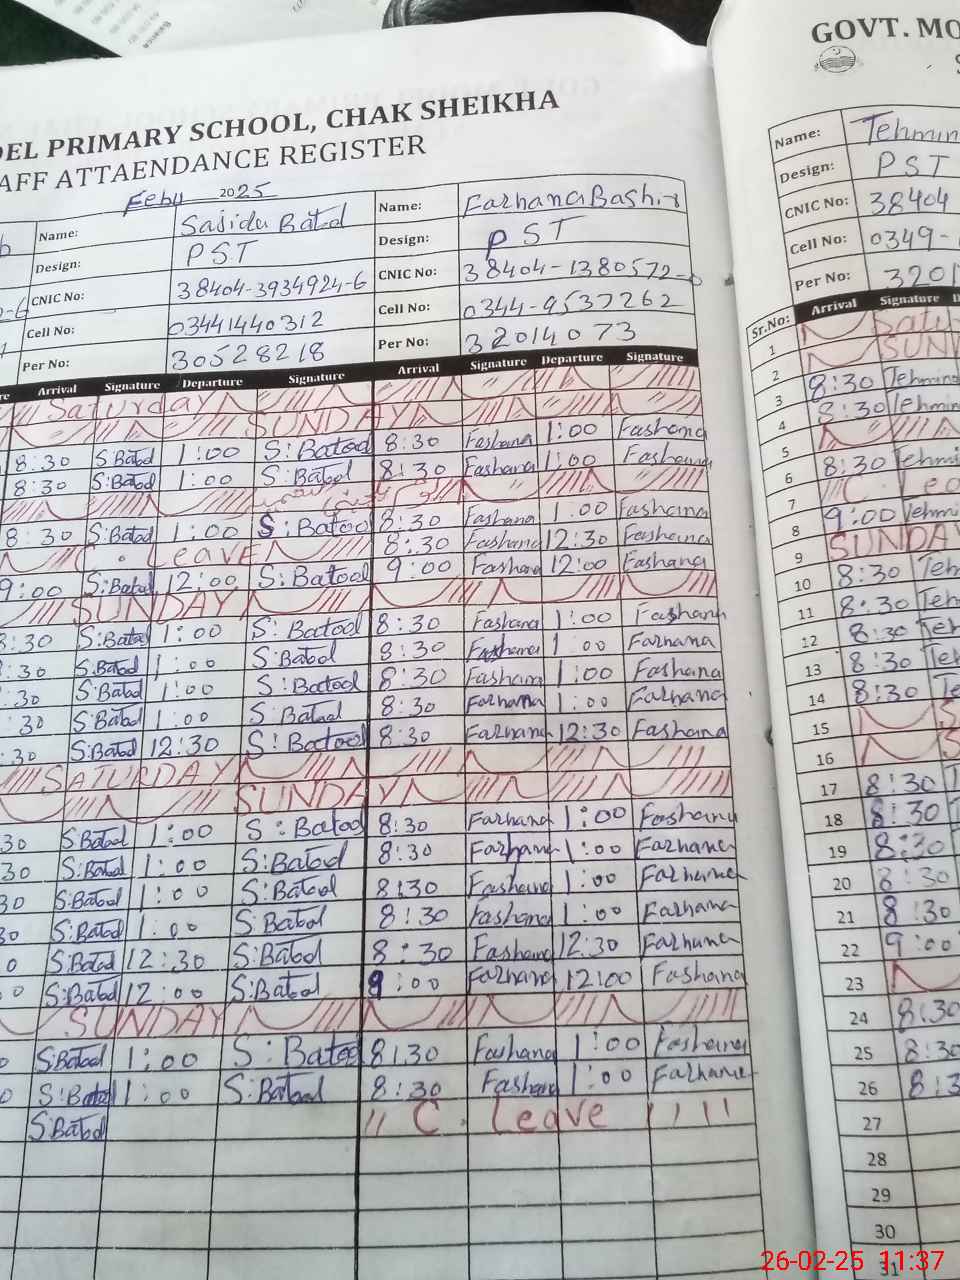 GOVT. MO
DEL PRIMARY SCHOOL, CHAK SHEIKHA
AFF ATTAENDANCE REGISTER
Feby 2025
Name: Sajida Batol Name: Farhana Bashir
Design: PST Design: PST
CNIC No: 38404-3934924-6 CNIC No: 38404-1380572-0
Cell No: 03441440312 Cell No: 0344-9537262
Per No: 30528218 Per No: 32014073
Arrival Signature Departure Signature Arrival Signature Departure Signature
Saturday
SUNDAY
8:30 S:Batool 1:00 S:Batool 8:30 Fashana 1:00 Fashana
8:30 S:Batol 1:00 S:Batol 8:30 Fashana 1:00 Fashana
8:30 S:Batol 1:00 S:Batool 8:30 Fashana 1:00 Fashana
C. Leave 8:30 Fashana 12:30 Fashana
9:00 S:Batol 12:00 S:Batool 9:00 Fashana 12:00 Fashana
SUNDAY
8:30 S:Batol 1:00 S:Batool 8:30 Fashana 1:00 Fashana
:30 S:Batol 1:00 S:Batol 8:30 Fashana 1:00 Farhana
:30 S:Batol 1:00 S:Batool 8:30 Fashana 1:00 Fashana
:30 S:Batol 1:00 S:Batol 8:30 Farhana 1:00 Farhana
:30 S:Batol 12:30 S:Batool 8:30 Farhana 12:30 Fashana
SATURDAY
SUNDAY
30 S:Batol 1:00 S:Batool 8:30 Farhana 1:00 Fashana
30 S:Batol 1:00 S:Batol 8:30 Farhana 1:00 Farhana
30 S:Batol 1:00 S:Batol 8:30 Fashana 1:00 Farhana
30 S:Batol 1:00 S:Batol 8:30 Fashana 1:00 Farhana
0 S:Batol 12:30 S:Batol 8:30 Fashana 12:30 Farhana
0 S:Batol 12:00 S:Batol 9:00 Farhana 12:00 Fashana
SUNDAY
0 S:Batool 1:00 S:Batool 8:30 Fashana 1:00 Fashana
0 S:Batol 1:00 S:Batol 8:30 Fashana 1:00 Farhana
S:Batol C. Leave
Name: Tehmin
Design: PST
CNIC No: 38404
Cell No: 0349-
Per No: 3201
Sr.No: Arrival Signature D
1 Satu
2 SUN
3 8:30 Tehmina
4 8:30 Tehmin
5
6 8:30 Tehmin
7 C. Lea
8 9:00 Tehmin
9 SUNDAY
10 8:30 Teh
11 8:30 Teh
12 8:30 Teh
13 8:30 Teh
14 8:30 Te
15 S
16 S
17 8:30 T
18 8:30 T
19 8:30
20 8:30
21 8:30
22 9:00
23
24 8:30
25 8:30
26 8:3
27
28
29
30
31
26-02-25 11:37